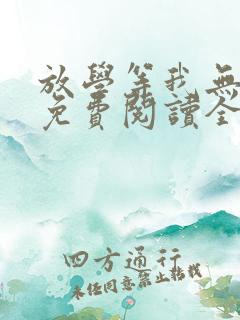 放學等我無
免費閱讀全
四方通行
未經同意禁止轉載